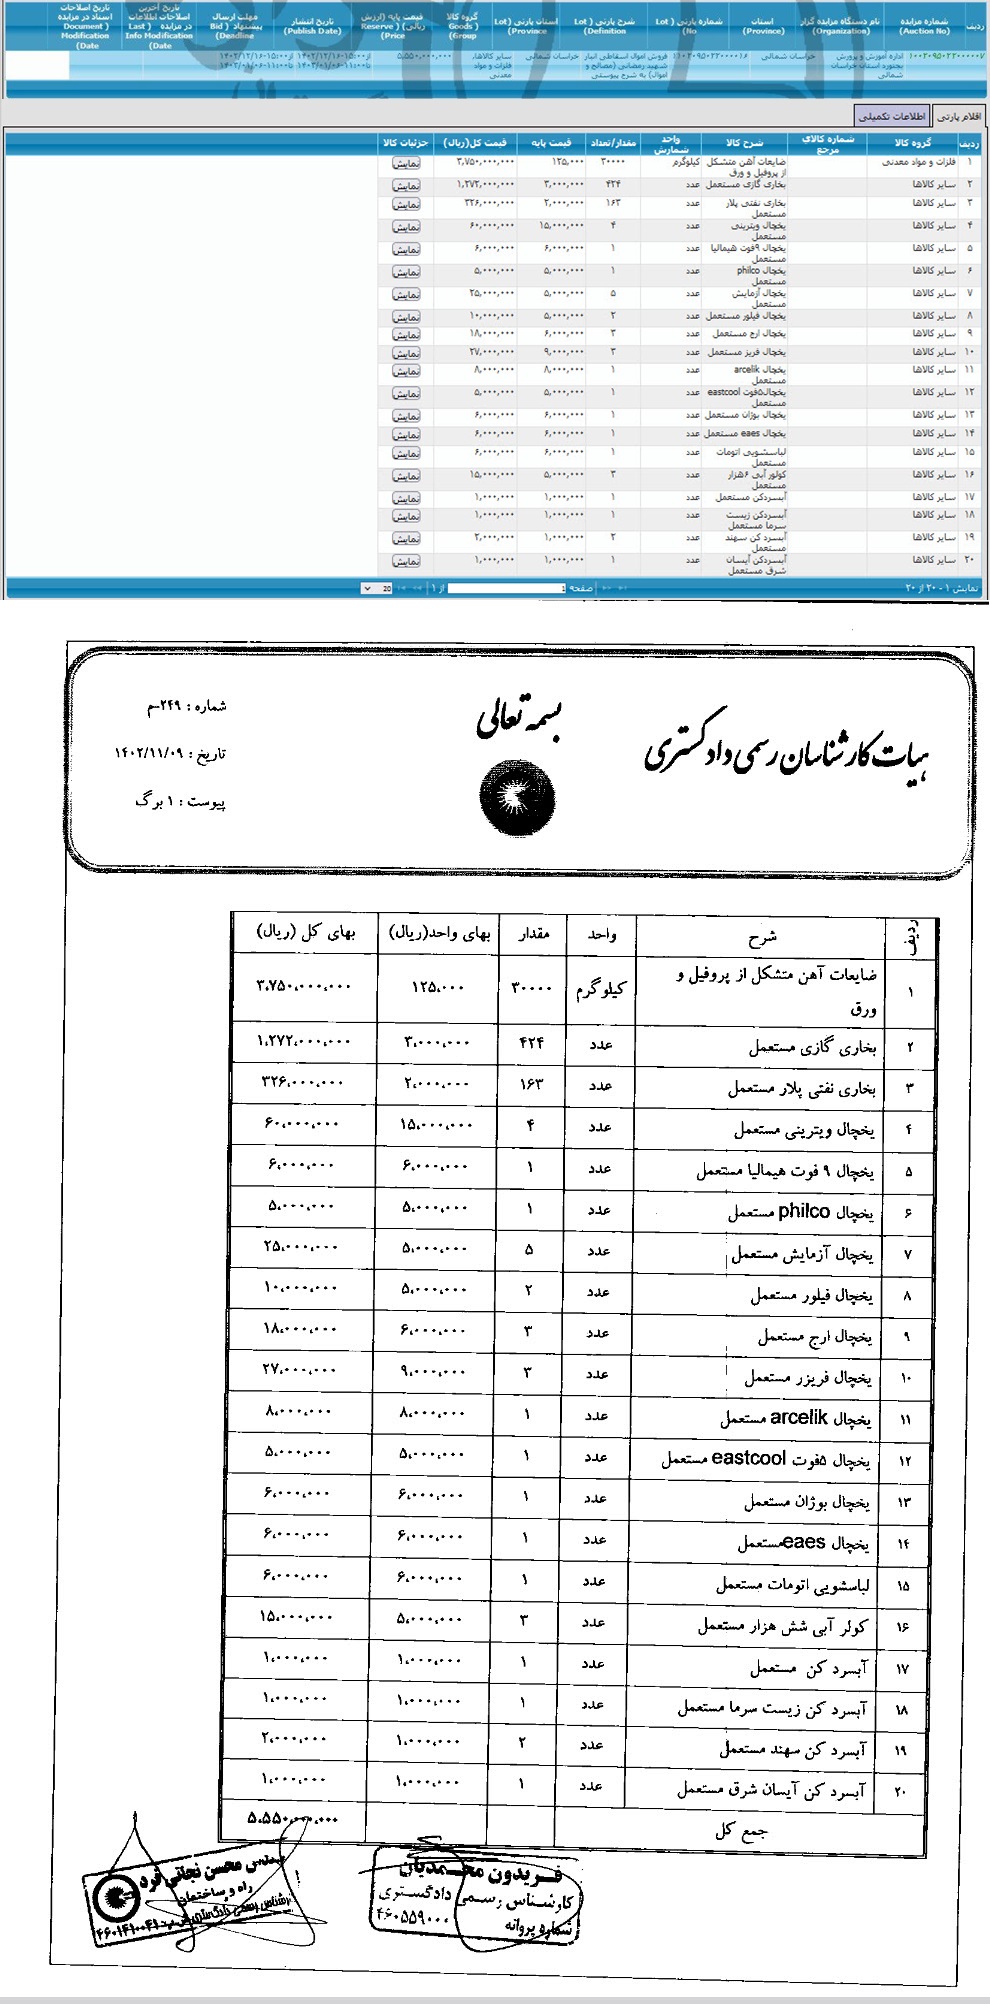 ردیف	شماره مزایده (Auction No)	نام دستگاه مزایده گزار (Organization)	استان (Province)	شماره پارتی ( Lot No)	شرح پارتی ( Lot Definition)	استان پارتی ( Lot Province)	گروه کالا ( Goods Group)	قیمت پایه (ارزش ریالی) ( Reserve Price)	مهلت ارسال پیشنهاد ( Bid Deadline)	تاریخ انتشار (Publish Date)	تاریخ آخرین اصلاحات اطلاعات در مزایده ( Last Info Modification Date)	تاریخ اصلاحات اسناد در مزایده ( Document Modification Date)
اداره آموزش و پرورش بجنورد استان خراسان شمالی	خراسان شمالی	فروش اموال اسقاطی انبار شهید رمضانی (مصالح و اموال) به شرح پیوستی	خراسان شمالی	سایر کالاها, فلزات و مواد معدنی	۵,۵۵۰,۰۰۰,۰۰۰
اقلام پارتی	اطلاعات تکمیلی
ردیف	گروه کالا	شماره کالای مرجع	شرح کالا	واحد شمارش	مقدار/تعداد	قیمت پایه	قیمت کل(ریال)	جزئیات کالا
۱	فلزات و مواد معدنی	ضایعات آهن متشکل از پروفیل و ورق	کیلوگرم	۳۰۰۰۰	۱۲۵,۰۰۰	۳,۷۵۰,۰۰۰,۰۰۰	نمایش
۲	سایر کالاها	بخاری گازی مستعمل	عدد	۴۲۴	۳,۰۰۰,۰۰۰	۱,۲۷۲,۰۰۰,۰۰۰	نمایش
۳	سایر کالاها	بخاری نفتی پلار مستعمل	عدد	۱۶۳	۲,۰۰۰,۰۰۰	۳۲۶,۰۰۰,۰۰۰	نمایش
۴	سایر کالاها	یخچال ویترینی مستعمل	عدد	۴	۱۵,۰۰۰,۰۰۰	۶۰,۰۰۰,۰۰۰	نمایش
۵	سایر کالاها	یخچال ۹فوت هیمالیا مستعمل	عدد	۱	۶,۰۰۰,۰۰۰	۶,۰۰۰,۰۰۰	نمایش
۶	سایر کالاها	یخچال philco مستعمل	عدد	۱	۵,۰۰۰,۰۰۰	۵,۰۰۰,۰۰۰	نمایش
۷	سایر کالاها	یخچال آزمایش مستعمل	عدد	۵	۵,۰۰۰,۰۰۰	۲۵,۰۰۰,۰۰۰	نمایش
۸	سایر کالاها	یخچال فیلور مستعمل	عدد	۲	۵,۰۰۰,۰۰۰	۱۰,۰۰۰,۰۰۰	نمایش
۹	سایر کالاها	یخچال ارج مستعمل	عدد	۳	۶,۰۰۰,۰۰۰	۱۸,۰۰۰,۰۰۰	نمایش
۱۰	سایر کالاها	یخچال فریز مستعمل	عدد	۳	۹,۰۰۰,۰۰۰	۲۷,۰۰۰,۰۰۰	نمایش
۱۱	سایر کالاها	یخچال arcelik مستعمل	عدد	۱	۸,۰۰۰,۰۰۰	۸,۰۰۰,۰۰۰	نمایش
۱۲	سایر کالاها	یخچال۵فوت eastcool مستعمل	عدد	۱	۵,۰۰۰,۰۰۰	۵,۰۰۰,۰۰۰	نمایش
۱۳	سایر کالاها	یخچال بوژان مستعمل	عدد	۱	۶,۰۰۰,۰۰۰	۶,۰۰۰,۰۰۰	نمایش
۱۴	سایر کالاها	یخچال eaes مستعمل	عدد	۱	۶,۰۰۰,۰۰۰	۶,۰۰۰,۰۰۰	نمایش
۱۵	سایر کالاها	لباسشویی اتومات مستعمل	عدد	۱	۶,۰۰۰,۰۰۰	۶,۰۰۰,۰۰۰	نمایش
۱۶	سایر کالاها	کولور آبی ۶هزار مستعمل	عدد	۳	۵,۰۰۰,۰۰۰	۱۵,۰۰۰,۰۰۰	نمایش
۱۷	سایر کالاها	آبسردکن مستعمل	عدد	۱	۱,۰۰۰,۰۰۰	۱,۰۰۰,۰۰۰	نمایش
۱۸	سایر کالاها	آبسردکن زیست سرما مستعمل	عدد	۱	۱,۰۰۰,۰۰۰	۱,۰۰۰,۰۰۰	نمایش
۱۹	سایر کالاها	آبسرد کن سهند مستعمل	عدد	۲	۱,۰۰۰,۰۰۰	۲,۰۰۰,۰۰۰	نمایش
۲۰	سایر کالاها	آبسردکن آیسان شرق مستعمل	عدد	۱	۱,۰۰۰,۰۰۰	۱,۰۰۰,۰۰۰	نمایش
نمایش ۱ - ۲۰ از ۲۰	صفحه 1 از ۱	20
بسمه تعالی
هیات کارشناسان رسمی دادگستری
شماره : ۲۴۹-م
تاریخ : ۱۴۰۲/۱۱/۰۹
پیوست : ۱ برگ
ردیف	شرح	واحد	مقدار	بهای واحد(ریال)	بهای کل (ریال)
۱	ضایعات آهن متشکل از پروفیل و ورق	کیلوگرم	۳۰۰۰۰	۱۲۵,۰۰۰	۳,۷۵۰,۰۰۰,۰۰۰
۲	بخاری گازی مستعمل	عدد	۴۲۴	۳,۰۰۰,۰۰۰	۱,۲۷۲,۰۰۰,۰۰۰
۳	بخاری نفتی پلار مستعمل	عدد	۱۶۳	۲,۰۰۰,۰۰۰	۳۲۶,۰۰۰,۰۰۰
۴	یخچال ویترینی مستعمل	عدد	۴	۱۵,۰۰۰,۰۰۰	۶۰,۰۰۰,۰۰۰
۵	یخچال ۹ فوت هیمالیا مستعمل	عدد	۱	۶,۰۰۰,۰۰۰	۶,۰۰۰,۰۰۰
۶	یخچال philco مستعمل	عدد	۱	۵,۰۰۰,۰۰۰	۵,۰۰۰,۰۰۰
۷	یخچال آزمایش مستعمل	عدد	۵	۵,۰۰۰,۰۰۰	۲۵,۰۰۰,۰۰۰
۸	یخچال فیلور مستعمل	عدد	۲	۵,۰۰۰,۰۰۰	۱۰,۰۰۰,۰۰۰
۹	یخچال ارج مستعمل	عدد	۳	۶,۰۰۰,۰۰۰	۱۸,۰۰۰,۰۰۰
۱۰	یخچال فریزر مستعمل	عدد	۳	۹,۰۰۰,۰۰۰	۲۷,۰۰۰,۰۰۰
۱۱	یخچال arcelik مستعمل	عدد	۱	۸,۰۰۰,۰۰۰	۸,۰۰۰,۰۰۰
۱۲	یخچال ۵فوت eastcool مستعمل	عدد	۱	۵,۰۰۰,۰۰۰	۵,۰۰۰,۰۰۰
۱۳	یخچال بوژان مستعمل	عدد	۱	۶,۰۰۰,۰۰۰	۶,۰۰۰,۰۰۰
۱۴	یخچال eaesمستعمل	عدد	۱	۶,۰۰۰,۰۰۰	۶,۰۰۰,۰۰۰
۱۵	لباسشویی اتومات مستعمل	عدد	۱	۶,۰۰۰,۰۰۰	۶,۰۰۰,۰۰۰
۱۶	کولر آبی شش هزار مستعمل	عدد	۳	۵,۰۰۰,۰۰۰	۱۵,۰۰۰,۰۰۰
۱۷	آبسرد کن مستعمل	عدد	۱	۱,۰۰۰,۰۰۰	۱,۰۰۰,۰۰۰
۱۸	آبسرد کن زیست سرما مستعمل	عدد	۱	۱,۰۰۰,۰۰۰	۱,۰۰۰,۰۰۰
۱۹	آبسرد کن سهند مستعمل	عدد	۲	۱,۰۰۰,۰۰۰	۲,۰۰۰,۰۰۰
۲۰	آبسرد کن آیسان شرق مستعمل	عدد	۱	۱,۰۰۰,۰۰۰	۱,۰۰۰,۰۰۰
جمع کل	۵,۵۵۰,۰۰۰,۰۰۰
فریدون محمدیان
کارشناس رسمی دادگستری
شماره پروانه ۴۶۰۵۵۹۰۰۰
مهندس محسن نجاتی فرد
راه و ساختمان